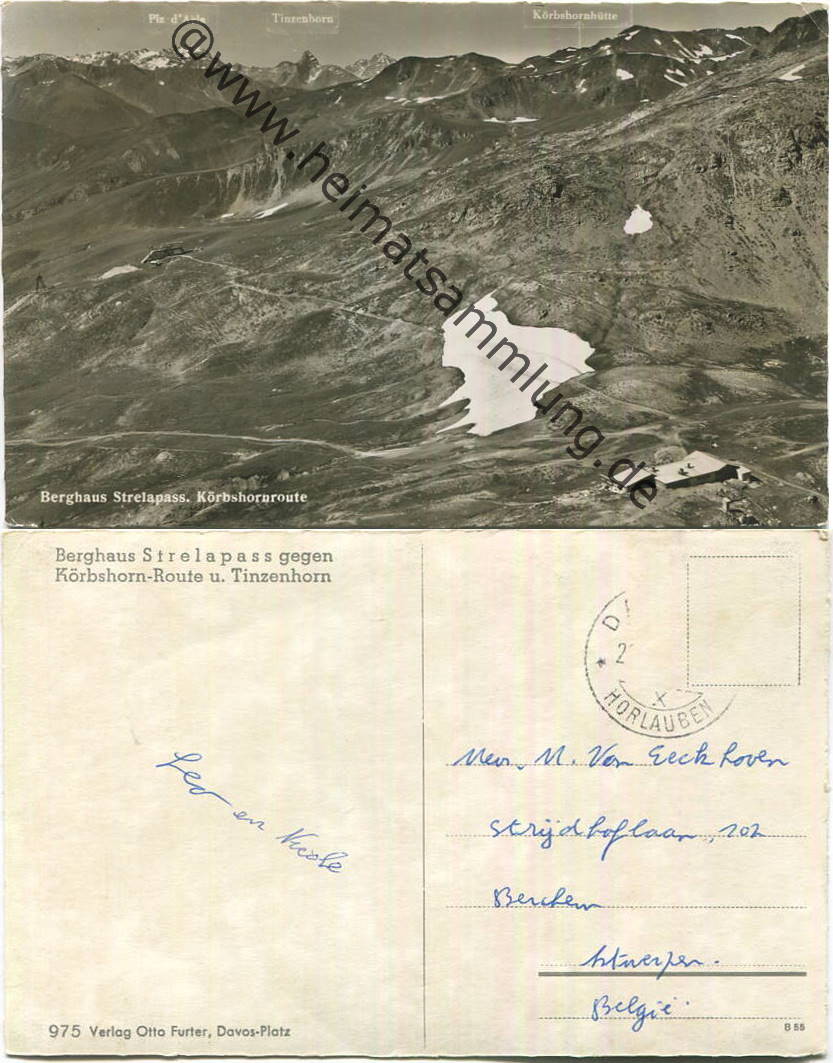 Piz d'Aela
Tinzenhorn
Körbshornhütte
@www.heimatsammlung.de
Berghaus Strelapass. Körbshornroute
Berghaus Strelapass gegen
Körbshorn-Route u. Tinzenhorn
HORLAUBEN
Mevr. M. Van Eeckhoven
Strijdhoflaan, 102
Berchem
Antwerpen.
België.
Leo en Nicole
975 Verlag Otto Furter, Davos-Platz
B 55